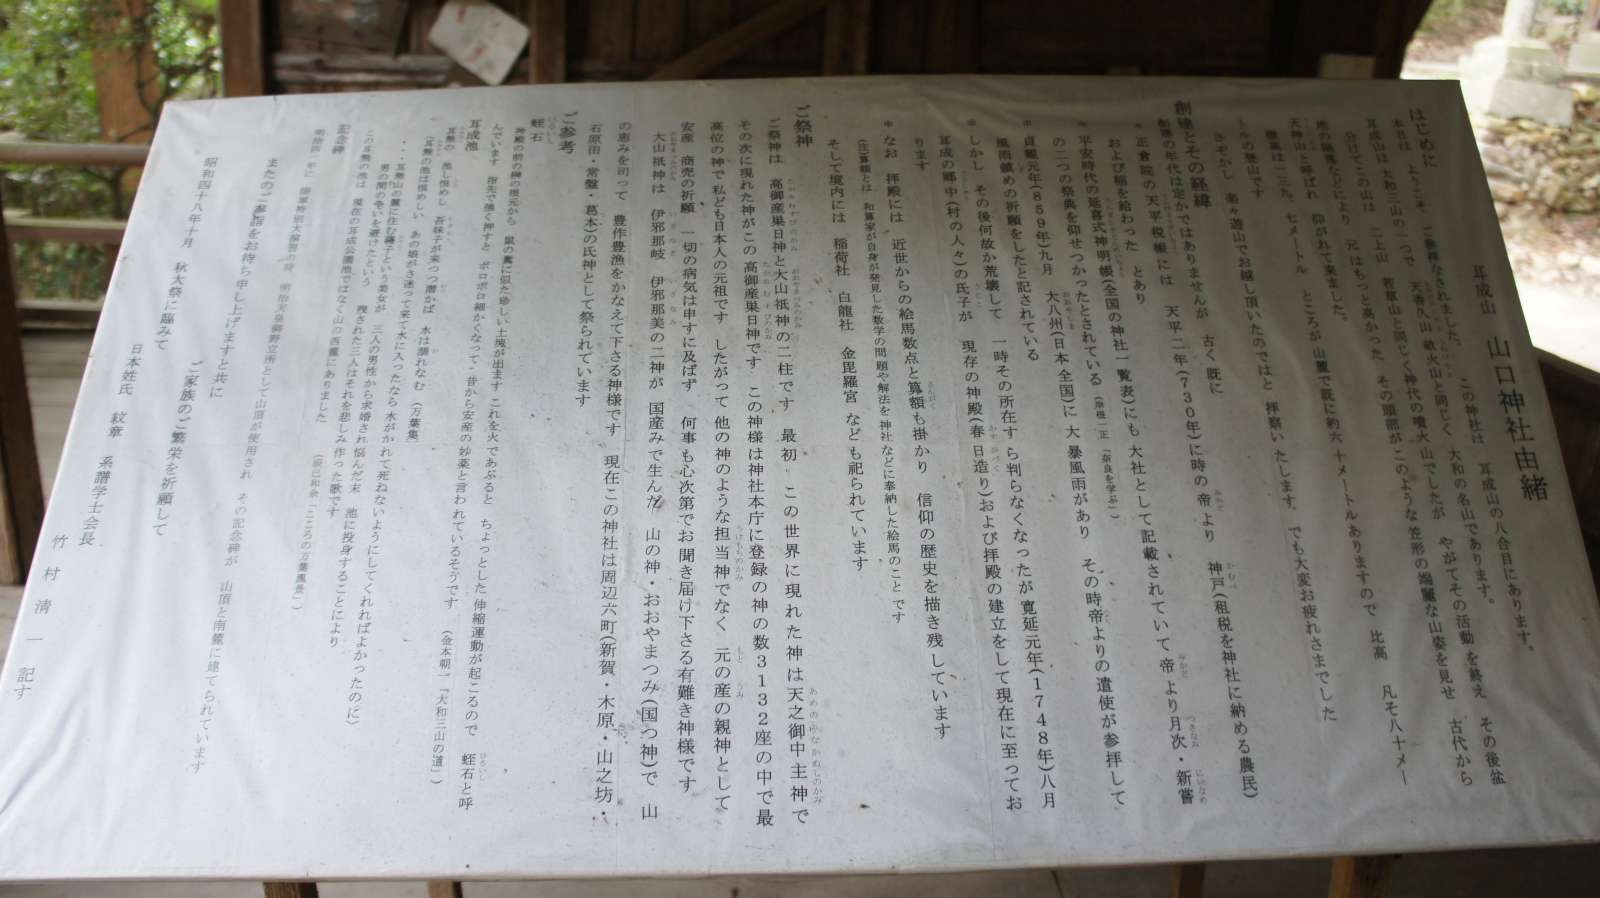 耳成山　山口神社由緒
はじめに　この神社は　耳成山の八合目にあります。
本日は　ようこそ　ご参拝なされました。
耳成山は　大和三山の一つで　天香久山　畝火山と同じく　大和の名山であります。
分けてこの山は　二上山　若草山と同じく神代の噴火山でしたが　やがてその活動を終え　その後盆
地の陥落などにより　元はもっと高かった　その頭部がこのような笠形の端麗な山姿を見せ　古代から
天神山と呼ばれ　仰がれて来ました。
標高は一三九、七メートル　ところが山麓で既に約六十メートルありますので　比高　凡そ八十メー
トルの登山です
さぞかし　楽々遊山でお越し頂いたのではと　拝察いたします。でも大変お疲れさまでした
創建とその経緯
創建の年代は定かではありませんが　古く既に
＊正倉院の天平税帳には　天平二年(７３０年)に時の帝より　神戸(租税を神社に納める農民)
および稲を給わった　とあり
＊平安時代の延喜式神明帳(全国の神社一覧表)にも　大社として記載されていて　帝より月次・新嘗
の二つの祭典を仰せつかったとされている
＊貞観元年(８５９年)九月　大八州(日本全国)に　大暴風雨があり　その時帝よりの遣使が参拝して
風雨鎮めの祈願をしたと記されている
＊しかし　その後何故か荒壊して　一時その所在すら判らなくなったが　寛延元年(１７４８年)八月
耳成の郷中(村の人々)の氏子が　現存の神殿(春日造り)および拝殿の建立をして現在に至ってお
ります
＊なお　拝殿には　近世からの絵馬数点と算額も掛かり　信仰の歴史を描き残しています
(注)算額とは　和算家が自身が発見した数学の問題や解法を　神社などに奉納した絵馬のことです
そして境内には　稲荷社　白龍社　金毘羅宮　なども祀られています
ご祭神
ご祭神は　高御産巣日神と大山祇神の二柱です　最初　この世界に現れた神は天之御中主神で
その次に現れた神がこの　高御産巣日神です　この神様は神社本庁に登録の神の数３１３２座の中で最
高位の神で　私ども日本人の元祖です　したがって　他の神のような担当神でなく　元の産の親神として
安産　商売の祈願　一切の病気は申すに及ばず　何事も心次第でお聞き届け下さる有難き神様です
大山祇神は　伊邪那岐　伊邪那美の二神が　国産みで生んだ　山の神・おおやまつみ(国つ神)で　山
の恵みを司って　豊作豊漁をかなえて下さる神様です　現在この神社は周辺六町(新賀・木原・山之坊・
石原田・常盤・葛本)の氏神として祭られています
ご参考
蛭石
神殿の前の榊の根元から　鼠の糞に似た珍しい土塊が出ます　これを火であぶると　ちょっとした伸縮運動が起こるので　蛭石と呼
んでいます　指先で強く押すと　ポロポロ細かくなって　昔から安産の妙薬と言われているそうです　(金本朝一「大和三山の道」)
耳成池
耳無の　池し恨めし　吾妹子が来つつ潜かば　水は涸れなむ　(万葉集)
(耳無の池は恨めしい　あの娘がさ迷って来て水に入ったなら　水がかれて死ねないようにしてくれればよかったのに)
・・耳無山の麓に住む縵子という美女が　三人の男性から求婚され悩んだ末　池に投身することにより
男の間の争いを避けたという　残された三人はそれを悲しみ作った歌です
この耳無の池は　現在の耳成公園池ではなく山の西麓にありました　(辰巳和余「こころの万葉風景」)
記念碑
明治四一年に　陸軍特別大演習の時　明治天皇御野立所として山頂が使用され　その記念碑が　山頂と南麓に建てられています
またのご参詣をお待ち申し上げますと共に
ご家族のご繁栄を祈願して
昭和四十八年十月　秋大祭に臨みて
日本姓氏　紋章　系譜学士会長
竹村清一　記す